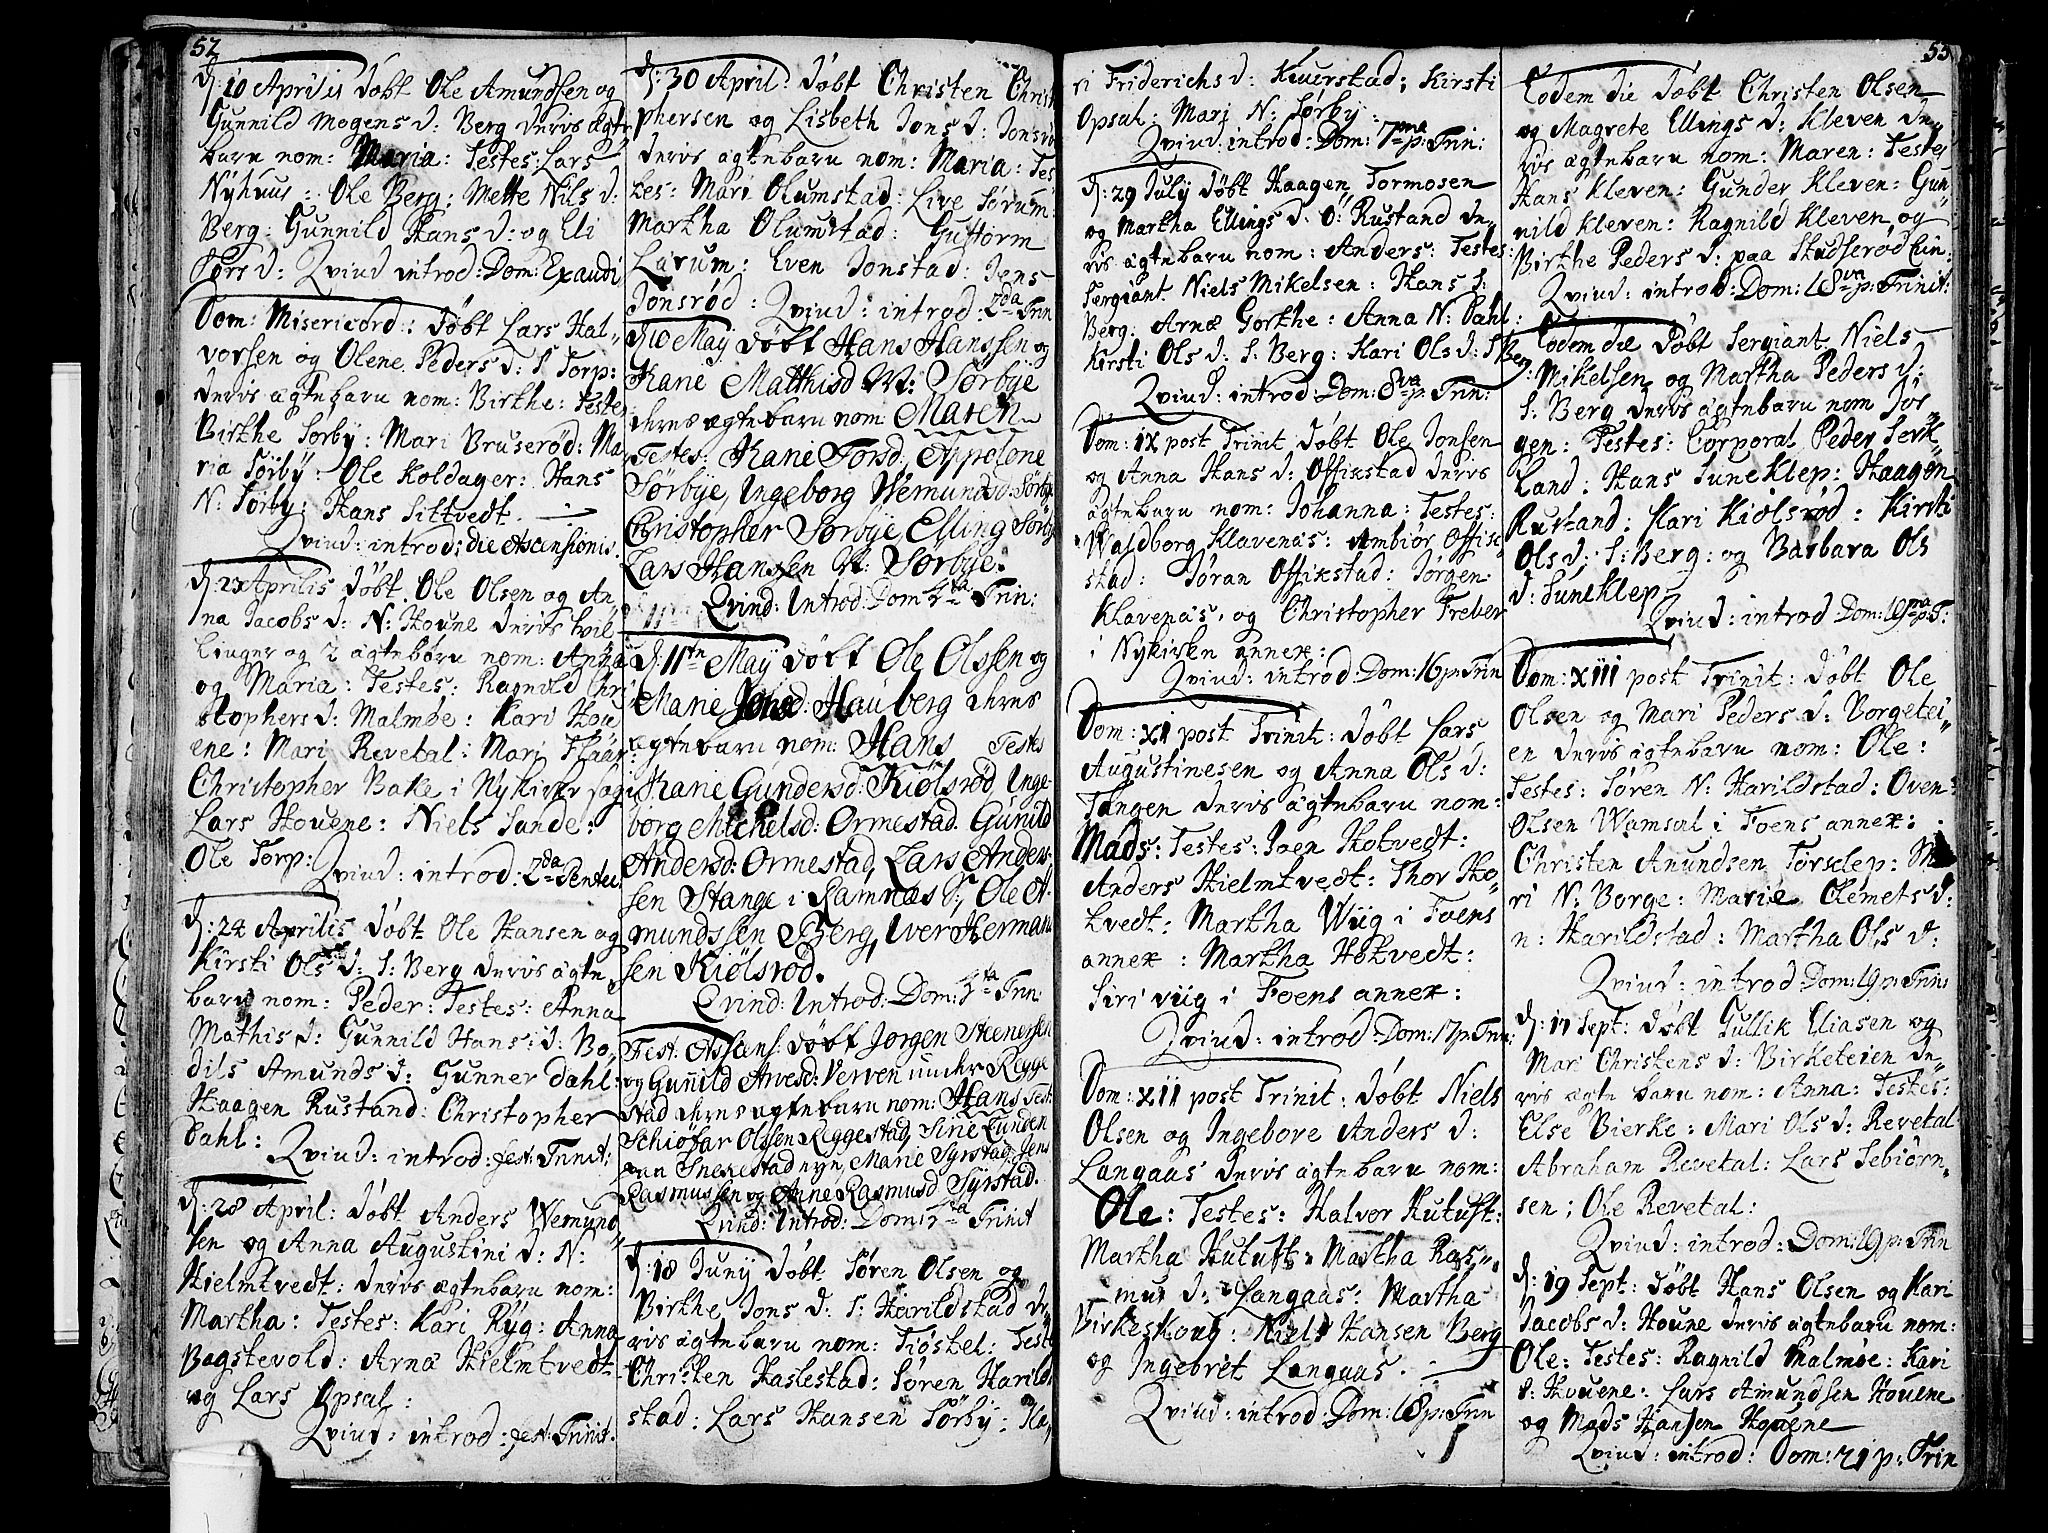 52
d: 10 Aprilis døbt Ole Amundsen og
Gunnild Mogens d: Berg deris ægte
barn nom: Maria: Testes: Lars
Nyhuus: Ole Berg: Mette Nils d:
Berg: Gunnild Hans d: og Eli
Tors d: Qvind introd: Dom: Exaudi
Dom: Misericord: døbt Lars Hal-
vorsen og Olene Peders d: S Torp:
deris ægtebarn nom: Birthe: Teste
Birthe Sørby: Mari Bruserød: Ma
ria Sørby: Ole Koldager: Hans
N: Sørby: Hans Sittvedt.
Qvind: introd: die Ascensionis.
d: 23 Aprilis døbt Ole Olsen og An
na Jacobs d: N: Houne deris tvil
linger og 2 ægtebørn nom: Anna
og Maria: Testes: Ragnild Chri
stophers d: Malmøe: Kari Hou
ene: Mari Revetal: Mari Flaar:
Christopher Bake i Nykirke sogn
Lars Houene: Niels Sande:
Ole Torp: Qvind: introd: 2da Pentec:
d: 24 Aprilis døbt Ole Hansen og
Kirsti Ols d: S: Berg deris ægte
barn nom: Peder: Testes: Anna
Mathis d: Gunnild Hans: d: Bo-
dils Amunds d: Gunner Dahl:
Haagen Rustand: Christopher
Dahl: Qvind: introd: fest: Trinit:
d: 28 April: døbt Anders Wemund
sen og Anna Augustini d: N:
Hielmtvedt: deris ægtebarn nom:
Martha: Testes: Kari Ryg: Anna
Bagstevold: Arna Hielmtvedt
og Lars Opsal:
Qvind: introd: fest: Trinit.
d: 30 April: døbt Christen Christ
phersen og Lisbeth Jons d: Jonsrø
deris ægtebarn nom: Maria: Tes
tes: Mari Olumstad: Live Sørum:
Martha Olumstad: Guttorm
Larum: Even Jonstad: Jens
Jonsrød: Qvind: introd: 2da Trin
d 10 May døbt Hans Hanssen og
Karie Matthisd N: Sørbye
deres ægtebarn nom: Maren
Testes: Karie Torsd, Appolone
Sørbye, Ingeborg Wemundsd: Sørbÿ
Christopher Sørbye, Elling Sørbÿ
Lars Hanssen N: Sørbye.
Qvind: Introd: Dom 3tia Trin:
d: 11te Maÿ døbt Ole Olssen og
Marie Jonsd: Hauberg deres
ægtebarn nom: Hans Testes
Karie Gundersd: Kiølsrød, Inge-
borg Michelsd: Ormestad. Gunild
Andersd: Ormestad, Lars Anders
sen Stange i Ramnæs S:, Ole A-
mundssen Berg, Iver Herman
sen Kiølsrod.
Qvind: Introd: Dom: 3tia Trin:
Fest: Assens: døbt Jorgen Steenersen
og Gunild Arvesd: Verven under Regge
stad deres ægtebarn nom: Hans Test:
Schiøfar Olssen Reggestad, Sirie Lunden
paa Snekestad eyn, Marie Syrstad, Jens
Rasmussen og Anne Rasmusd Syrstad.
Qvind: Introd: Dom: 3tia Trinit
d: 18 Junÿ døbt Søren Olsen og
Birthe Jons d: S: Harildstad de
ris ægtebarn nom: Tiøstel: Teste
Christen Haslestad: Søren Harild
stad: Lars Hansen Sørbÿ: Ka,
ri Friderichs d: Kiuerstad; Kirsti
Opsal: Mari N: Sørby:
Qvind: introd: Dom: 7ma p: Trin:
d: 29 July døbt Haagen Tormosen
og Martha Ellings d: Ö: Rustand de
ris ægtebarn nom: Anders: Testes:
Sergiant Niels Mikelsen: Hans S:
Berg: Arnæ Gorthe: Anna N: Dahl:
Kirsti Ols d: S: Berg: Kari Ols d: S Berg
Qvind: introd: Dom: 8va p: Trin:
Dom: IX post Trinit døbt Ole Jonsen
og Anna Hans d: Offixstad deris
ægtebarn nom: Johanna: Testes:
Waldborg Klavenæs: Ambiør Offixs
stad: Jøran Offixstad: Jørgen
Klavenæs, og Christopher Treber
i Nykirken annex:
Qvind: introd: Dom: 16 p: Trin
Dom: XI post Trinit: døbt Lars
Augustinesen og Anna Ols d:
Tangen deris ægtebarn nom:
Mads: Testes: Joen Hotvedt:
Anders Hielmtvedt: Thor Ho-
tvedt: Martha Wiig i Foens
annex: Martha Hotvedt:
Siri viig i Foens annex:
Qvind: introd: Dom: 17 p: Trin:
Dom: XII post Trinit: døbt Niels
Olsen og Ingebore Anders d:
Langaas deris ægtebarn nom:
Ole: Testes: Halvor Hutuft:
Martha Hutuft: Martha Ras-
mus d: Langaas: Martha
Birkeskong: Niels Hansen Berg
og Ingebret Langaas.
Qvind: introd: Dom: 18 p: Trin
53
Eodem die døbt Christen Olsen
og Magrete Ellings d: Kleven de-
ris ægtebarn nom: Maren: Testes
Hans Kleven: Gunder Kleven: Gun
nild Kleven: Ragnild Kleven og
Birthe Peders d: paa Skudserød
Qvind: introd: Dom: 18va p: Trinit:
Eodem die døbt Sergiant Niels
Mikelsen og Martha Peders d:
S: Berg deris ægtebarn nom Jør
gen: Testes: Corporal Peder Serk-
land: Hans Suneklep: Haagen
Rustand: Kari Kiølsrød: Kirsti
Ols d: S: Berg: og Barbara Ols
d: Suneklep:
Qvind: introd: Dom: 19na p: T:
Dom: XIII post Trinit: døbt Ole
Olsen og Mari Peders d: Borgetei-
en deris ægtebarn nom: Ole:
Testes: Søren N: Harildstad: Oven
Olsen Wamsal i Foens annex:
Christen Anundsen Torsklep: Ma
ri N: Borge: Marie Clemets d:
n: Harildstad: Martha Ols d:
Qvind: introd: Dom: 19 p: Trin:
d: 17 Sept: døbt Gullik Eliasen og
Mari Christens d: Birketeien de-
ris ægte barn nom: Anna: Testes:
Else Bierke: Mari Ols d: Revetal
Abraham Revetal: Lars Sebiørn-
sen; Ole Revetal:
Qvind: introd: Dom: 19 p: Trin
d: 19 Sept: døbt Hans Olsen og Kari
Jacobs d: Houne deris ægtebarn nom:
Ole: Testes: Ragnild Malmøe: Kari
S: Houene: Lars Amundsen Houene
og Mads Hansen Houene
Qvind: introd: Dom: 21 p: Trin